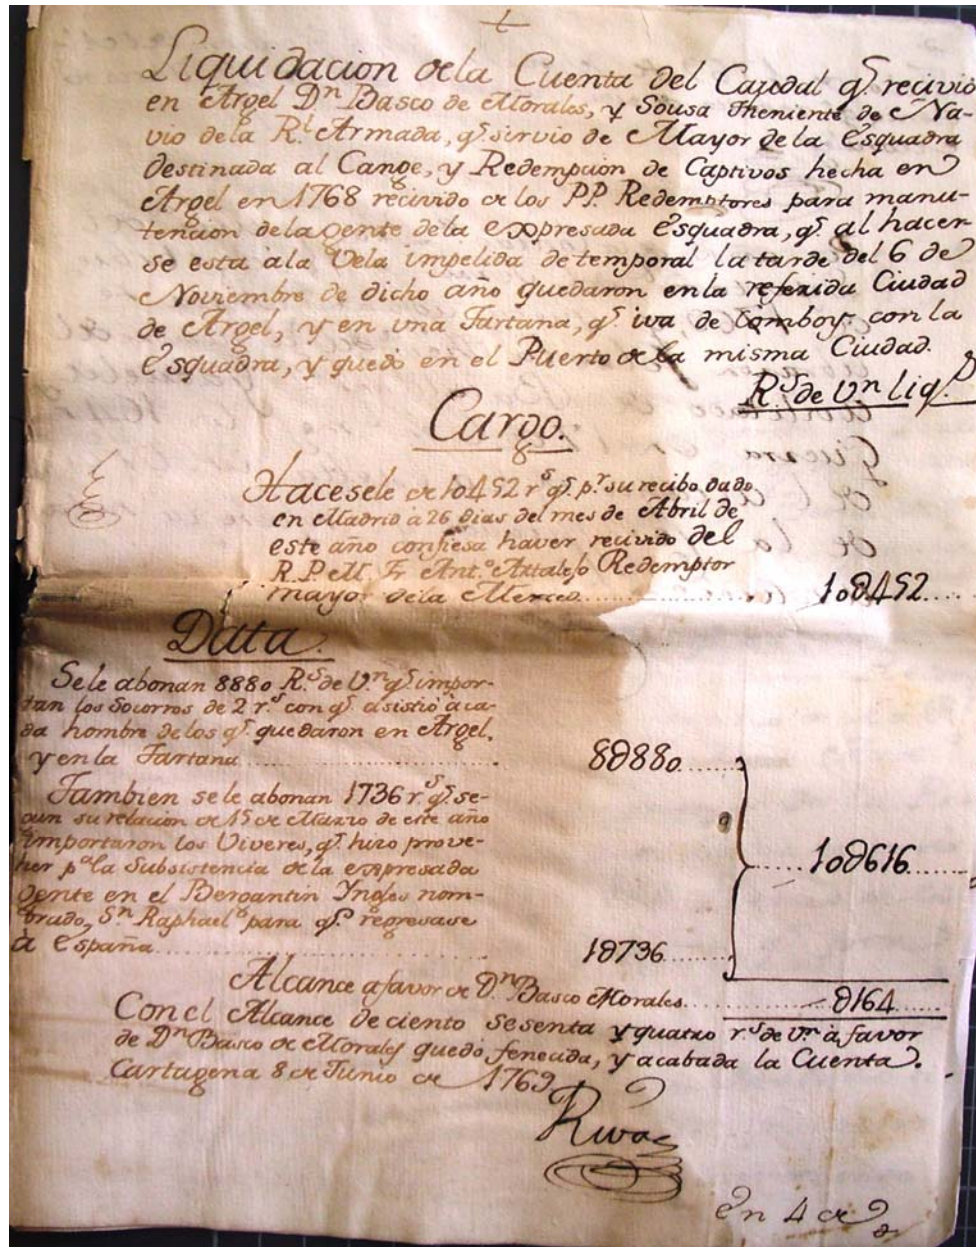 Liquidacion dela Cuenta del Caudal q.e recivio
en Argel D.n Basco de Morales, y Sousa Theniente de Na-
vio dela R.l Armada, q.e sirvio de Mayor de la Esquadra
destinada al Cange, y Redempcion de Captivos hecha en
Argel en 1768 recivido de los P.P. Redemptores para manu-
tencion dela gente dela expresada Esquadra, q.e al hacer-
se esta ala Vela impelida de temporal la tarde del 6 de
Noviembre de dicho año quedaron en la referida Ciudad
de Argel, y en una Tartana, q.e iva de Comboy con la
Esquadra, y quedó en el Puerto de la misma Ciudad.
R.s de V.n
Cargo.
Hacesele de 10452 r.s q.e p.r su recibo dado
en Madrid à 26 dias del mes de Abril de
este año confiesa haver recivido del
R. P. M. Fr. Ant.o Redemptor
mayor dela Merced............ 10઀452....
Data.
Se le abonan 8880 R.s de V.n q.e impor-
tan los Socorros de 2 r.s con q.e asistió à ca-
da hombre de los q.e quedaron en Argel,
y en la Tartana............ 8઀880......
Tambien se le abonan 1736 r.s q.e se-
gun su relacion de 15 de Marzo de este año
importaron los Viveres, q.e hizo prove-
her p.a la Subsistencia de la expresada
Gente en el Bergantin Yngles nom-
brado, S.n Raphael para q.e regresase
à España............ 1઀736......
......10઀616......
Alcance a favor de D.n Basco Morales............ ઀164....
Con el Alcance de ciento sesenta y quatro r.s de V.n à favor
de D.n Basco de Morales quedó fenecida, y acabada la Cuenta.
Cartagena 8 de Junio de 1769.
Rivas
En 4 de